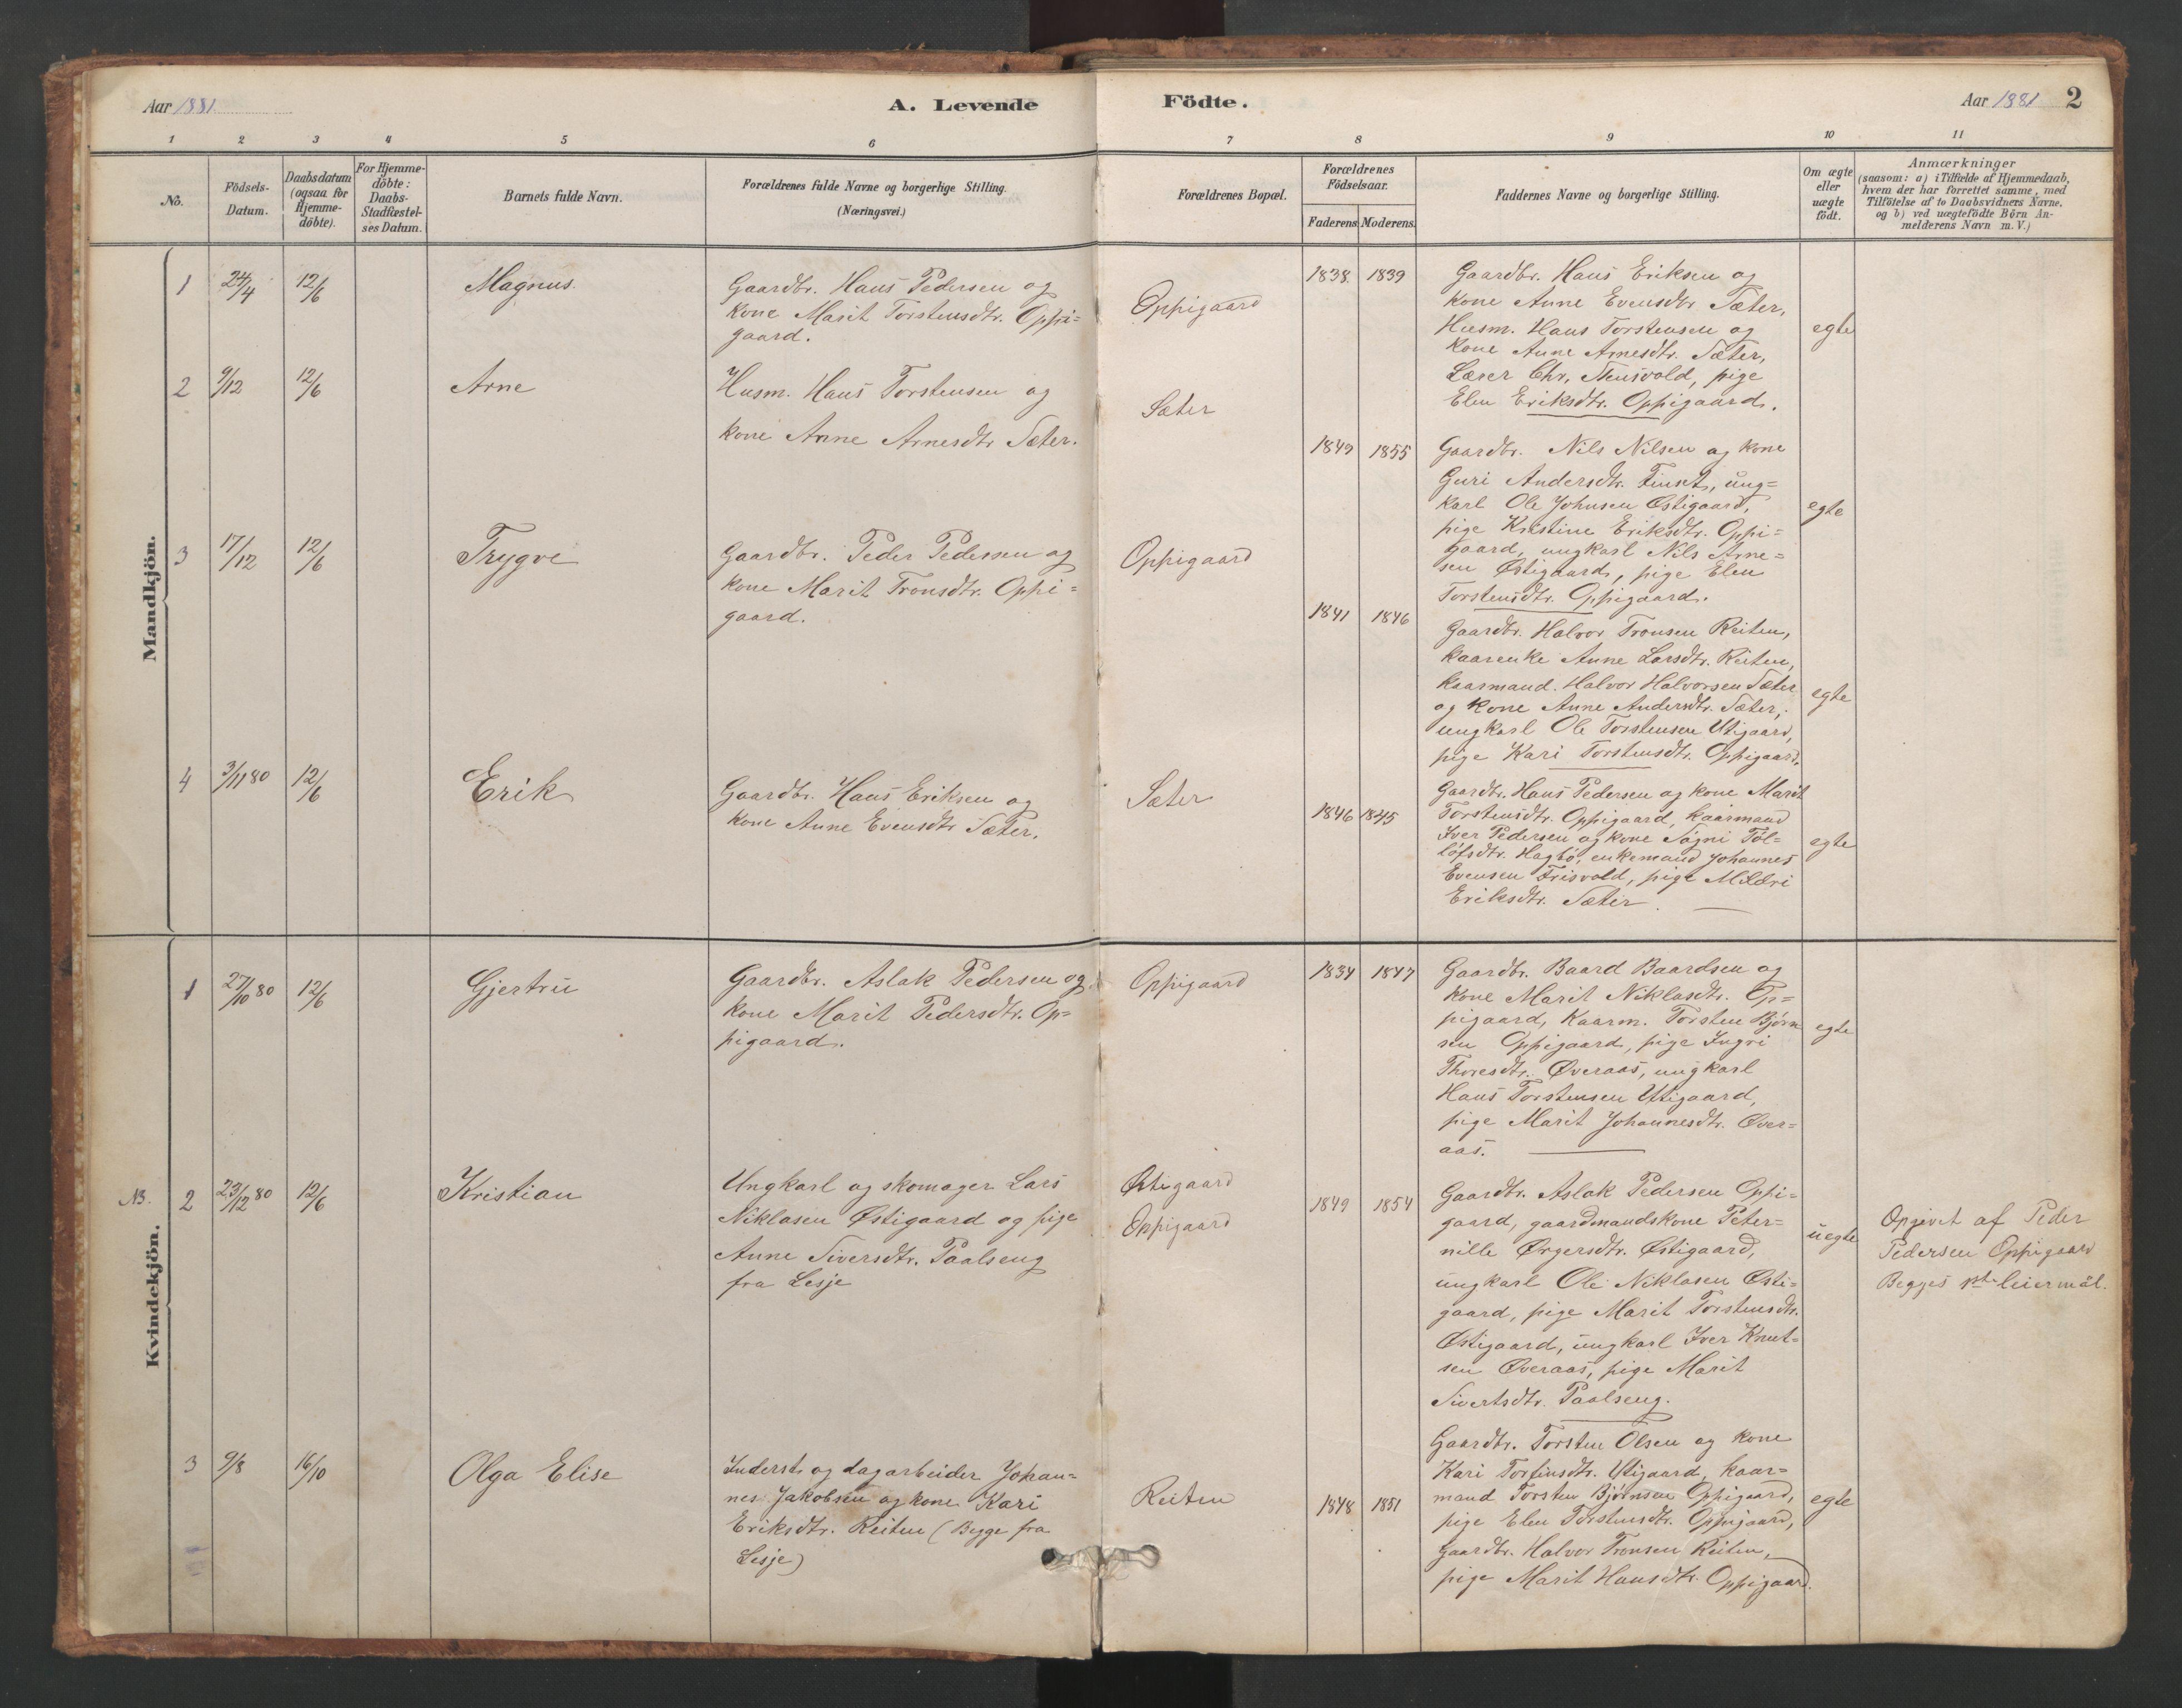 Aar 1881.
A. Levende Födte.
Aar 1881
2
1 2 3 4 5 6 7 8 9 10 11
No.
Födsels-Datum.
Daabsdatum (ogsaa for Hjemme-döbte).
For Hjemme-döbte: Daabs-Stadfæstel-ses Datum.
Barnets fulde Navn.
Forældrenes fulde Navne og borgerlige Stilling.
(Næringsvei.)
Forældrenes Bopæl.
Forældrenes Födselsaar.
Faderens. Moderens.
Faddernes Navne og borgerlige Stilling.
Om ægte eller uægte födt.
Anmærkninger
(saasom: a) i Tilfælde af Hjemmedaab,
hvem der har forrettet samme, med
Tilföielse af to Daabsvidners Navne.
og b) ved uægtefödte Börn An-
melderens Navn m. V.)
Mandkjön.
1 24/4 12/6 Magnus.
Gaardbr. Hans Pedersen og
kone Marit Torstensdtr. Oppi=
gaard.
Oppigaard
1838. 1839
Gaardbr. Hans Eriksen og
kone Anne Evensdtr Sæter,
Husm. Hans Torstensen og
kone Anne Arnesdtr. Sæter,
Læser Chr. pige
Elen Eriksdtr. Oppigaard.
egte
2 9/12 12/6 Arne
Husm. Hans Torstensen og
kone Anne Arnesdtr Sæter.
Sæter
1849 1855
Gaardbr. Nils Nilsen og kone
Guri Andersdtr. Finset, ung=
karl Ole Johnsen Østigaard,
pige Kristine Eriksdtr. Oppi=
gaard, ungkarl Nils Arne=
sen Østigaard, pige Elen
Torstensdtr. Oppigaard.
egte
3 17/12 12/6 Trygve
Gaardbr. Peder Pedersen og
kone Marit Tronsdtr. Oppi=
gaard.
Oppigaard
1841 1846
Gaardbr. Halvor Tronsen Reiten,
kaarenke Anne Larsdtr. Reiten,
kaarmand. Halvor Halvorsen Sæter
og kone Anne Andersdtr. Sæter,
ungkarl Ole Torstensen Utigaard,
pige Kari Torstensdtr. Oppigaard.
egte
4 3/11 80 12/6 Erik
Gaardbr. Hans Eriksen og
kone Anne Evensdtr Sæter.
Sæter
1846 1845
Gaardbr. Hans Pedersen og kone Marit
Torstensdtr. Oppigaard, kaarmand
Iver Pedersen og kone Signi Tol=
löfsdtr. Hagbö, enkemand Johannes
Evensen Frisvold, pige Mildri
Eriksdtr. Sæter.
egte
Kvindekjön.
1 27/10 80 12/6 Gjertru
Gaardbr. Aslak Pedersen og
kone Marit Pedersdtr. Op=
pigaard.
Oppigaard
1834 1847
Gaardbr. Baard Baardsen og
kone Marit Niklasdtr. Op=
pigaard, Kaarm. Torsten Bjørn
sen Oppigaard, pige Ingri
Thoresdtr. Øveraas, ungkarl
Hans Torstensen Utigaard,
pige Marit Johannesdtr. Över=
aas.
egte
NB. 2 23/12 80 12/6 Kristian
Ungkarl og skomager Lars
Niklasen Østigaard og pige
Anne Siversdtr. Paalseng
fra Lesje
Østigaard
Oppigaard
1849 1854
Gaardbr. Aslak Pedersen Oppi=
gaard, gaardmandskone Peter=
nille Ørgersdtr. Østigaard,
ungkarl Ole Niklasen Østi=
gaard, pige Marit Torstensdtr.
Østigaard, ungkarl Iver Knut=
sen Øveraas, pige Marit
Sivertsdtr. Paalseng.
uegte
Opgivet af Peder
Pedersen Oppigaard
Begges 1ste leiermål.
3 9/8 16/10 Olga Elise
Inderst. og dagarbeider Johan=
nes Jakobsen og kone Kari
Eriksdtr. Reiten (Begge fra
Lesje)
Reiten
1848 1851
Gaardbr. Torsten Olsen og kone
Kari Torfinsdtr. Utigaard, kaar=
mand Torsten Bjørnsen Oppigaard,
pige Elen Torstensdtr. Oppigaard,
Gaardbr. Halvor Tronsen Reiten,
pige Marit Hansdtr. Oppigaard.
egte